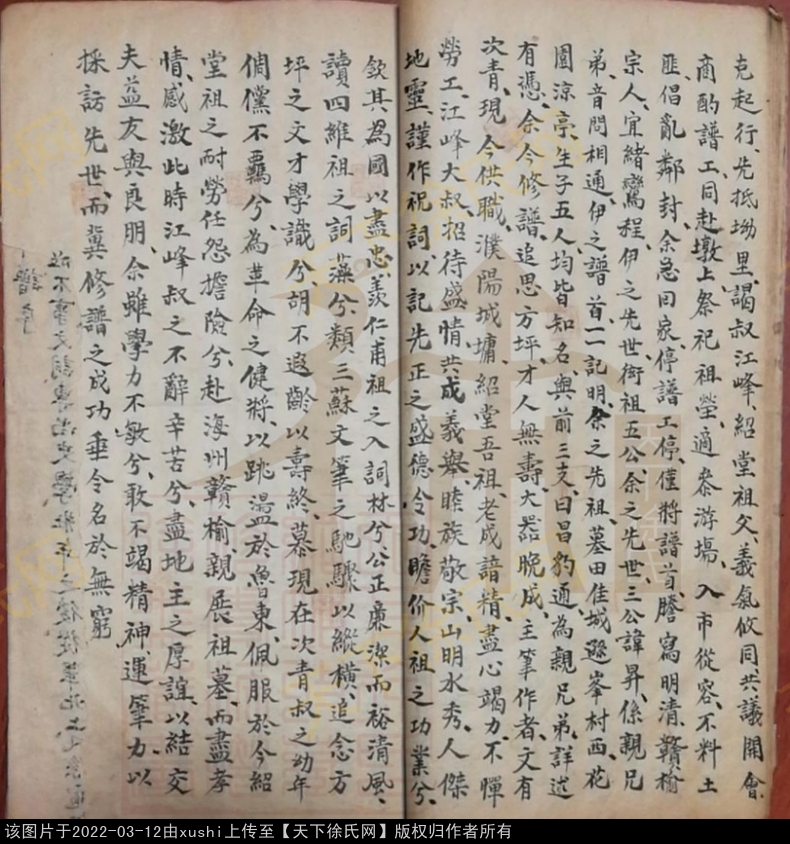 克起行、先抵坳里、謁叔江峰、紹堂祖父、義氣攸同、共議開會、
商酌譜工、同赴墩上祭祀祖塋、適泰游塲、入市從容、不料土
匪倡亂鄰封、余急回家、停譜工停、僅將譜首、謄寫明清、贛榆
宗人、宜緒鸞程、伊之先世衍祖五公、余之先世三公諱昇、係親兄
弟、音問相通、伊之譜首一一記明、余之先祖、墓田佳城、遯峯村西、花
園涼亭、生子五人、均皆知名、與前三支、曰昌豹通、為親兄弟、詳述
有憑、余今修譜、追思方坪、才人無壽、大器晚成、主筆作者、文有
次青、現今供職、濮陽城墉、紹堂吾祖、老成諳精、盡心竭力、不憚
勞工、江峰大叔、招待盛情、共成義舉、睦族敬宗、山明水秀、人傑
地靈、謹作祝詞、以記先正之盛德令功、瞻价人祖之功業兮、
欽其為國以盡忠、羨仁甫祖之入詞林兮、公正廉潔而裕清風、
讀四維祖之詞藻兮、類三蘇文筆之馳驟以縱橫、追念方
坪之文才學識兮、胡不遐齡以壽終、慕現在次青叔之幼年
倜儻不羈兮、為革命之健將、以跳盪於魯東、佩服於今紹
堂祖之耐勞任怨擔險兮、赴海州贛榆、親展祖墓、而盡孝
情、感激此時江峰叔之不辭辛苦兮、盡地主之厚誼、以結交
夫益友與良朋、余雖學力不敏兮、敢不竭精神、運筆力、以
採訪先世、而冀修譜之成功垂令名於無窮
该图片于2022-03-12由xushi上传至【天下徐氏网】版权归作者所有